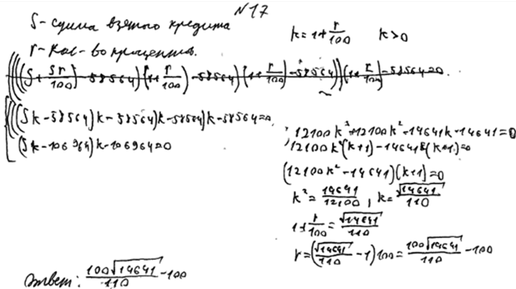 №17
S - сумма взятого кредита
r - кол-во процентов.
k = 1 + r/100   k > 0
(((S + Sr/100) - 58564)(1 + r/100) - 58564)(1 + r/100) - 58564)(1 + r/100) - 58564 = 0.
(((Sk - 58564)k - 58564)k - 58564)k - 58564 = 0
(Sk - 106964)k - 106964 = 0
12100k³ + 12100k² - 14641k - 14641 = 0
12100k²(k+1) - 14641(k+1) = 0
(12100k² - 14641)(k+1) = 0
k² = 14641/12100, k = √14641/110
1 + r/100 = √14641/110
r = (√14641/110 - 1)100 = 100√14641/110 - 100
Ответ: 100√14641/110 - 100